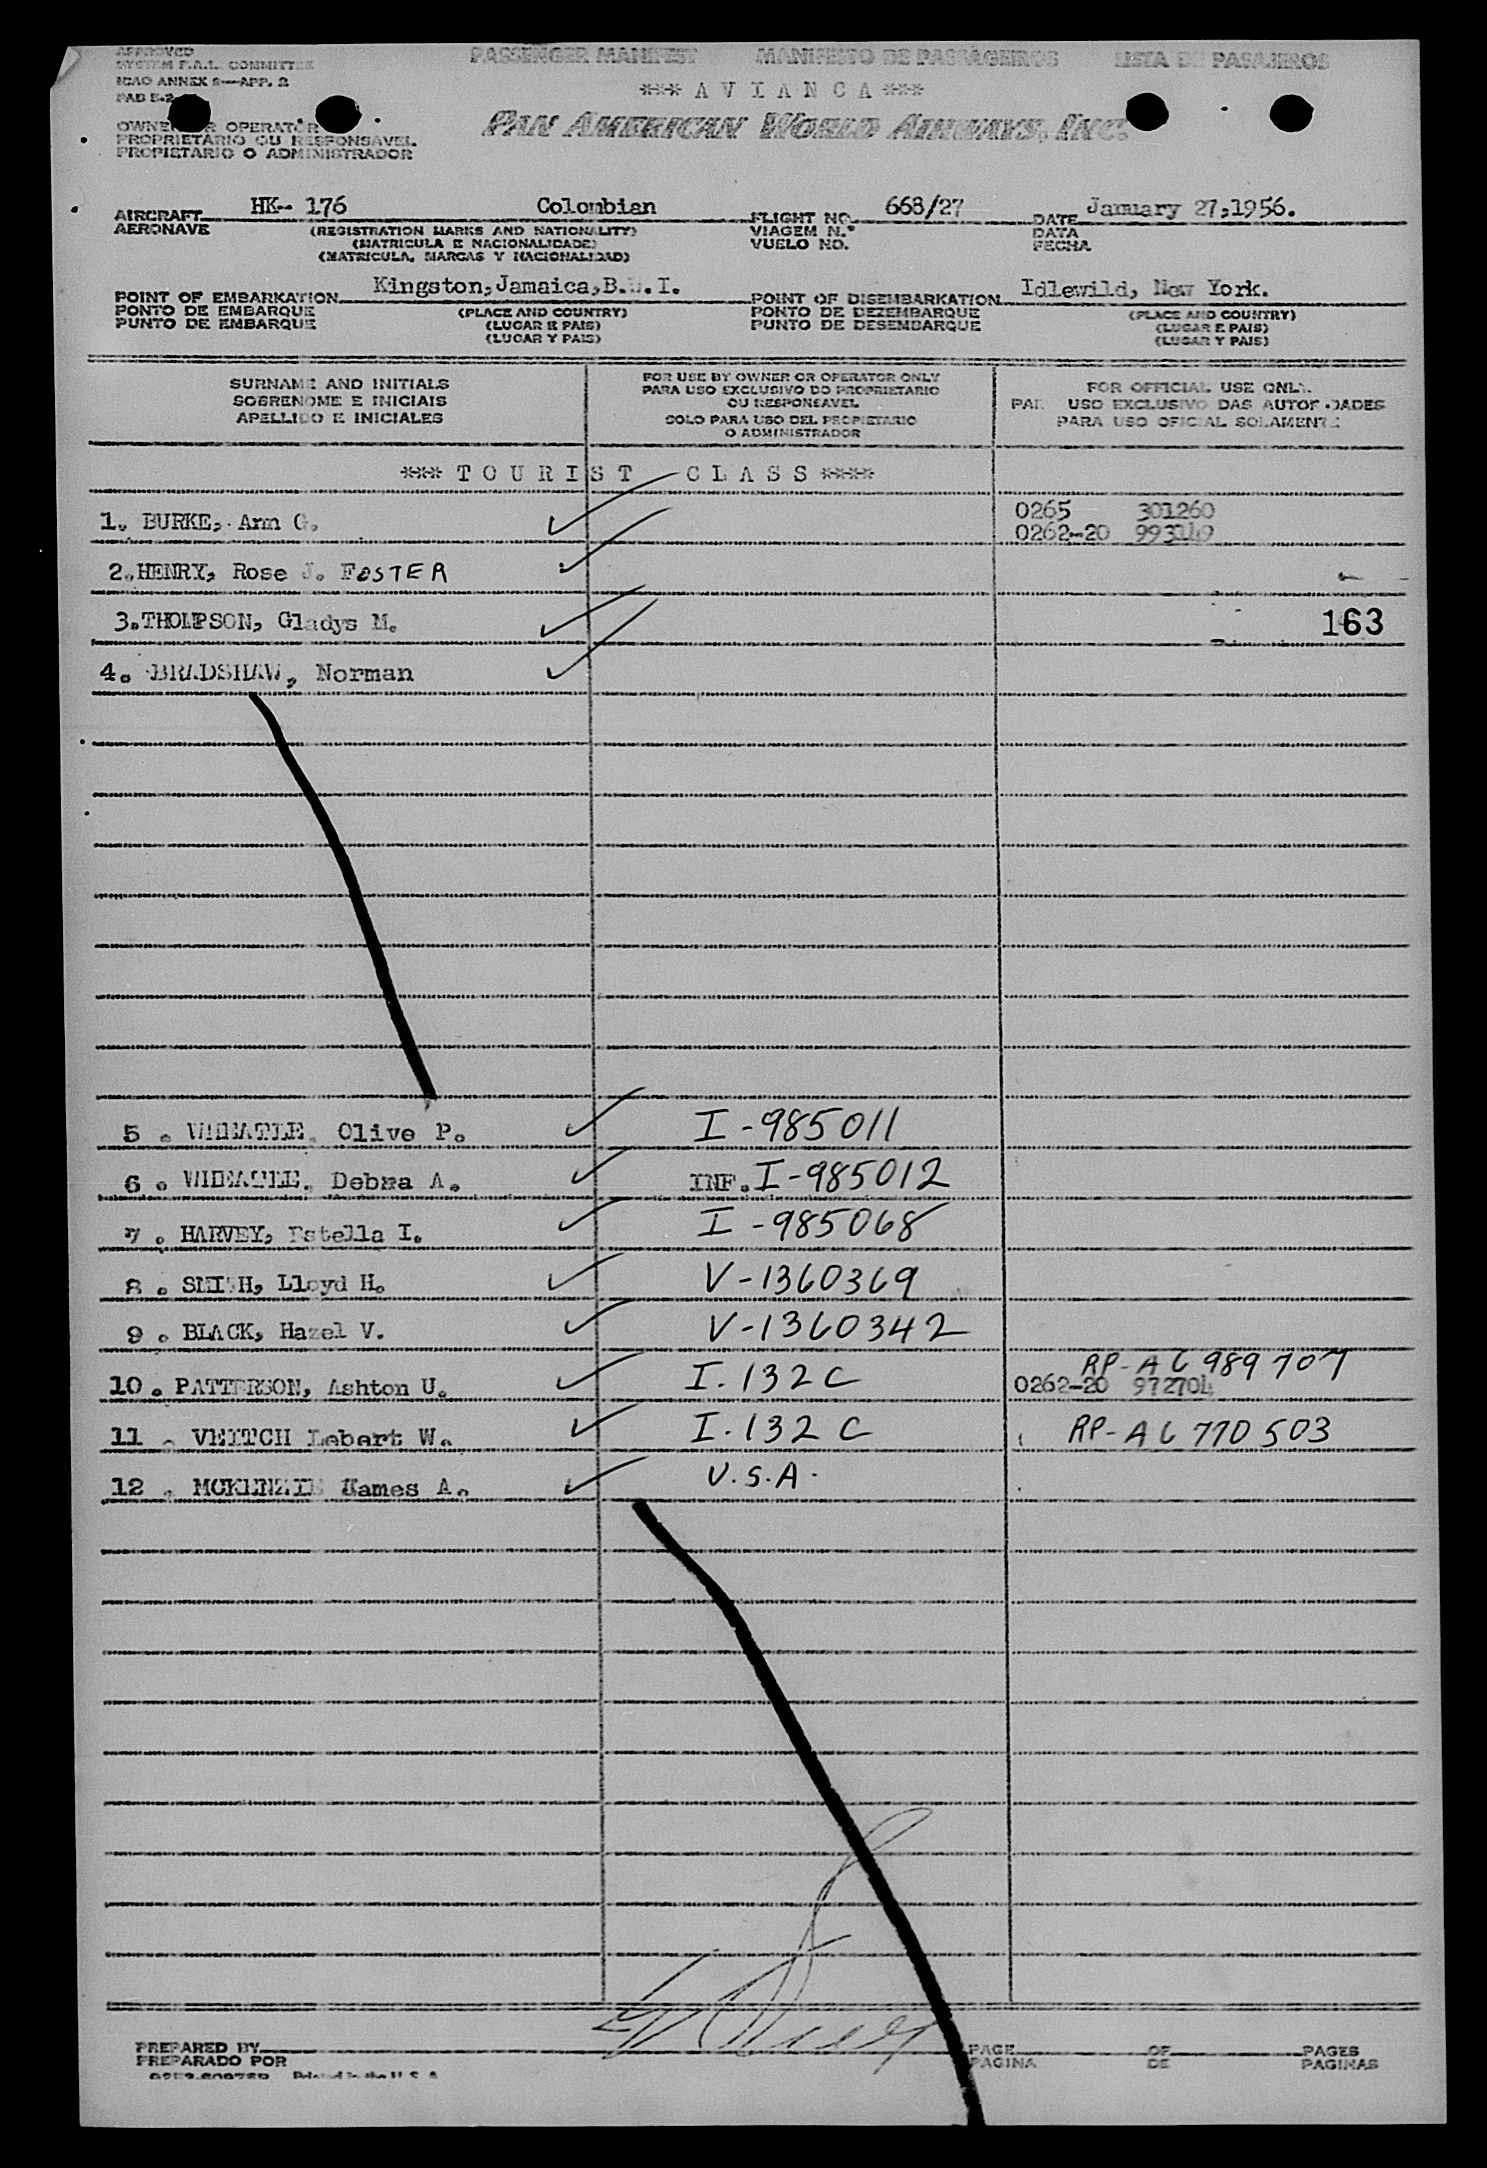 APPROVED
SYSTEM F.A.L. COMMITTEE
ICAO ANNEX 9—APP. 2
PASSENGER MANIFEST MANIFESTO DE PASSAGEIROS LISTA DE PASAJEROS
*** A V I A N C A ***
PAN AMERICAN WORLD AIRWAYS, INC.
OWNER OR OPERATOR
PROPRIETARIO OU RESPONSAVEL
PROPIETARIO O ADMINISTRADOR
AIRCRAFT HK-- 176 Colombian FLIGHT NO. 668/27 DATE January 27,1956.
AERONAVE (REGISTRATION MARKS AND NATIONALITY) VIAGEM N.º DATA
(MATRICULA E NACIONALIDADE) VUELO NO. FECHA
(MATRICULA, MARCAS Y NACIONALIDAD)
POINT OF EMBARKATION Kingston,Jamaica,B.W.I. POINT OF DISEMBARKATION Idlewild, New York.
PONTO DE EMBARQUE (PLACE AND COUNTRY) PONTO DE DEZEMBARQUE (PLACE AND COUNTRY)
PUNTO DE EMBARQUE (LUGAR E PAIS) PUNTO DE DESEMBARQUE (LUGAR E PAIS)
(LUGAR Y PAIS) (LUGAR Y PAIS)
SURNAME AND INITIALS
SOBRENOME E INICIAIS
APELLIDO E INICIALES
FOR USE BY OWNER OR OPERATOR ONLY
PARA USO EXCLUSIVO DO PROPRIETARIO
OU RESPONSAVEL
SOLO PARA USO DEL PROPIETARIO
O ADMINISTRADOR
FOR OFFICIAL USE ONLY.
USO EXCLUSIVO DAS AUTORIDADES
PARA USO OFICIAL SOLAMENTE
*** T O U R I S T C L A S S ****
1. BURKE, Ann G. 0265 301260
0262-20
2.HENRY, Rose J. FOSTER
3.THOMPSON, Gladys M. 163
4. BRADSHAW, Norman
5 . WHEATLE. Olive P. I-985011
6 . WHEATLE. Debra A. INF. I-985012
7 . HARVEY, Estella I. I-985068
8 . SMITH, Lloyd H. V-1360369
9 . BLACK, Hazel V. V-1360342
RP-A6 989707
10 . PATTERSON, Ashton U. I.132 C 0262-20 972704
11 . VEITCH Lebert W. I.132 C RP-A6 770503
12 . MCKENZIE James A. U.S.A.
PREPARED BY PAGE OF PAGES
PREPARADO POR PAGINA DE PAGINAS
Printed in the U.S.A.